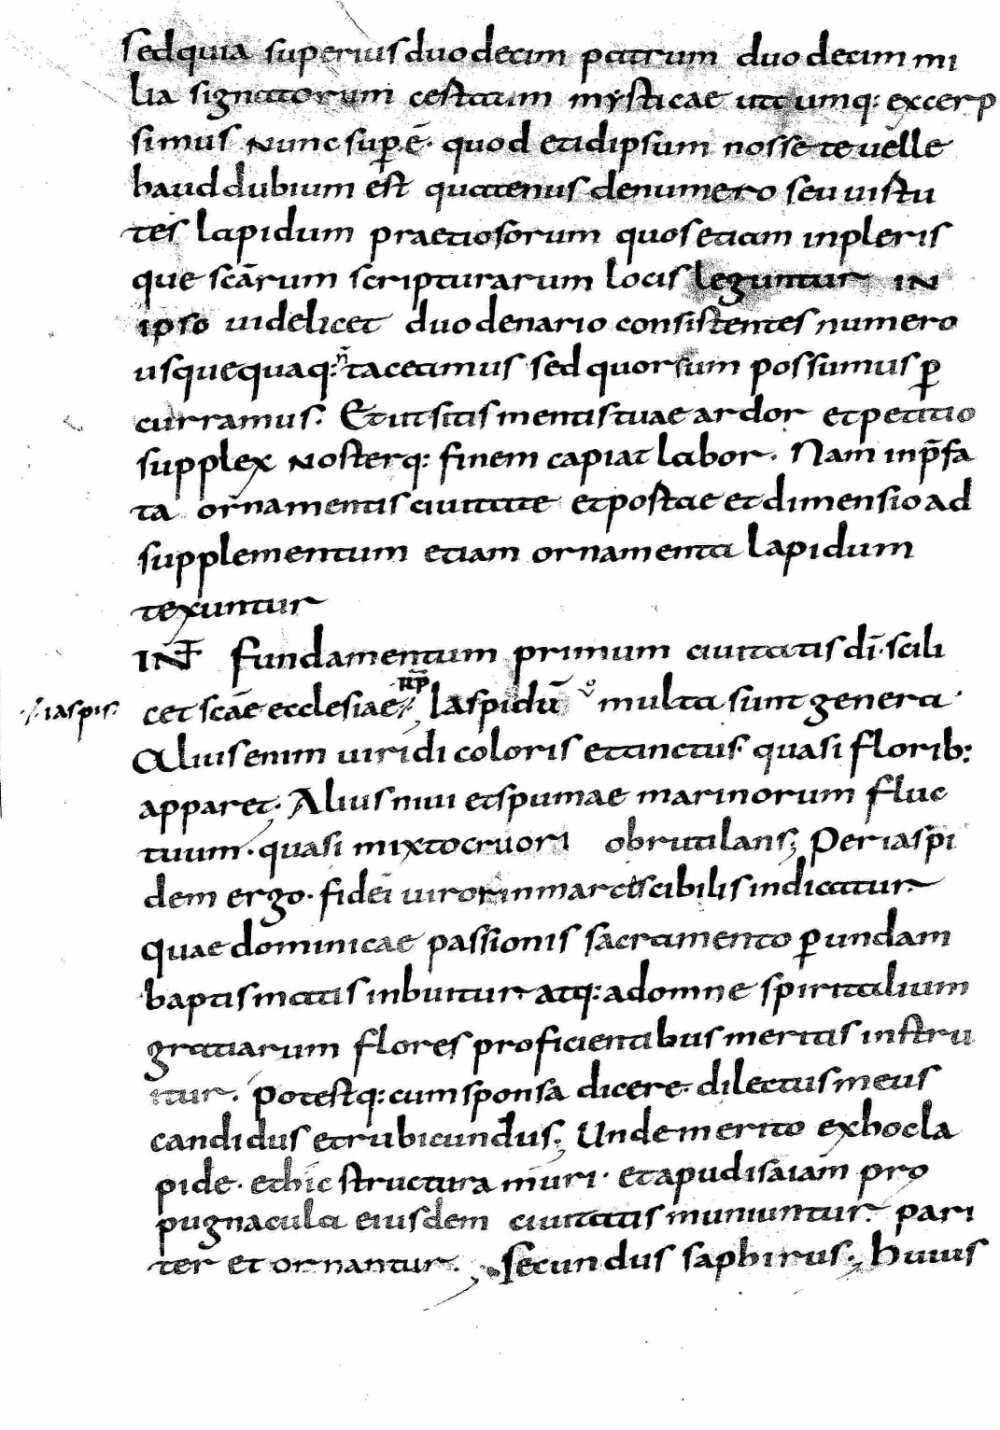 sedquia superius duodecim patrum duodecim mi
lia signatorum cestatim mysticae utcumq: excerp
simus nunc sup̄ ē· quod etidipsum nosse te uelle
haud dubium est quatenus denumero seu uistu
tes lapidum praetiosorum quos etiam inpleris
que scārum scripturarum locis leguntur in
ipso uidelicet duodenario consistentes numero
usquequaq: n̄ taceamus sed quorsum possumus p̄
curramus. Et ut sitis mentis tuae ardor et petitio
supplex nosterq: finem capiat labor. Nam inp̄fa
ta ornamentis ciuitate et postae et dimensio ad
supplementum etiam ornamenta lapidum
texuntur
INT̄ fundamentum primum ciuitatis dī· scili
·/· iaspis· cet scāe ecclesiae ·/· Iaspidū v̊ multa sunt genera·
Alius enim uiridi coloris et tinctus· quasi florib:
apparet· Alius niui et spumae marinorum fluc
tuum· quasi mixto cruori obrutilans; Per iaspi
dem ergo· fidei uiror inmarcescibilis indicatur
quae dominicae passionis sacramento p̄ undam
baptismatis inbuitur atq: ad omne spiritalium
gratiarum flores proficientibus meritis instru
itur. Potestq: cum sponsa dicere· dilectus meus
candidus et rubicundus; Unde merito ex hoc la
pide· et hic structura muri· et apud isaiam pro
pugnacula eiusdem ciuitatis muniuntur· pari
ter et ornantur. Secundus saphirus; huius